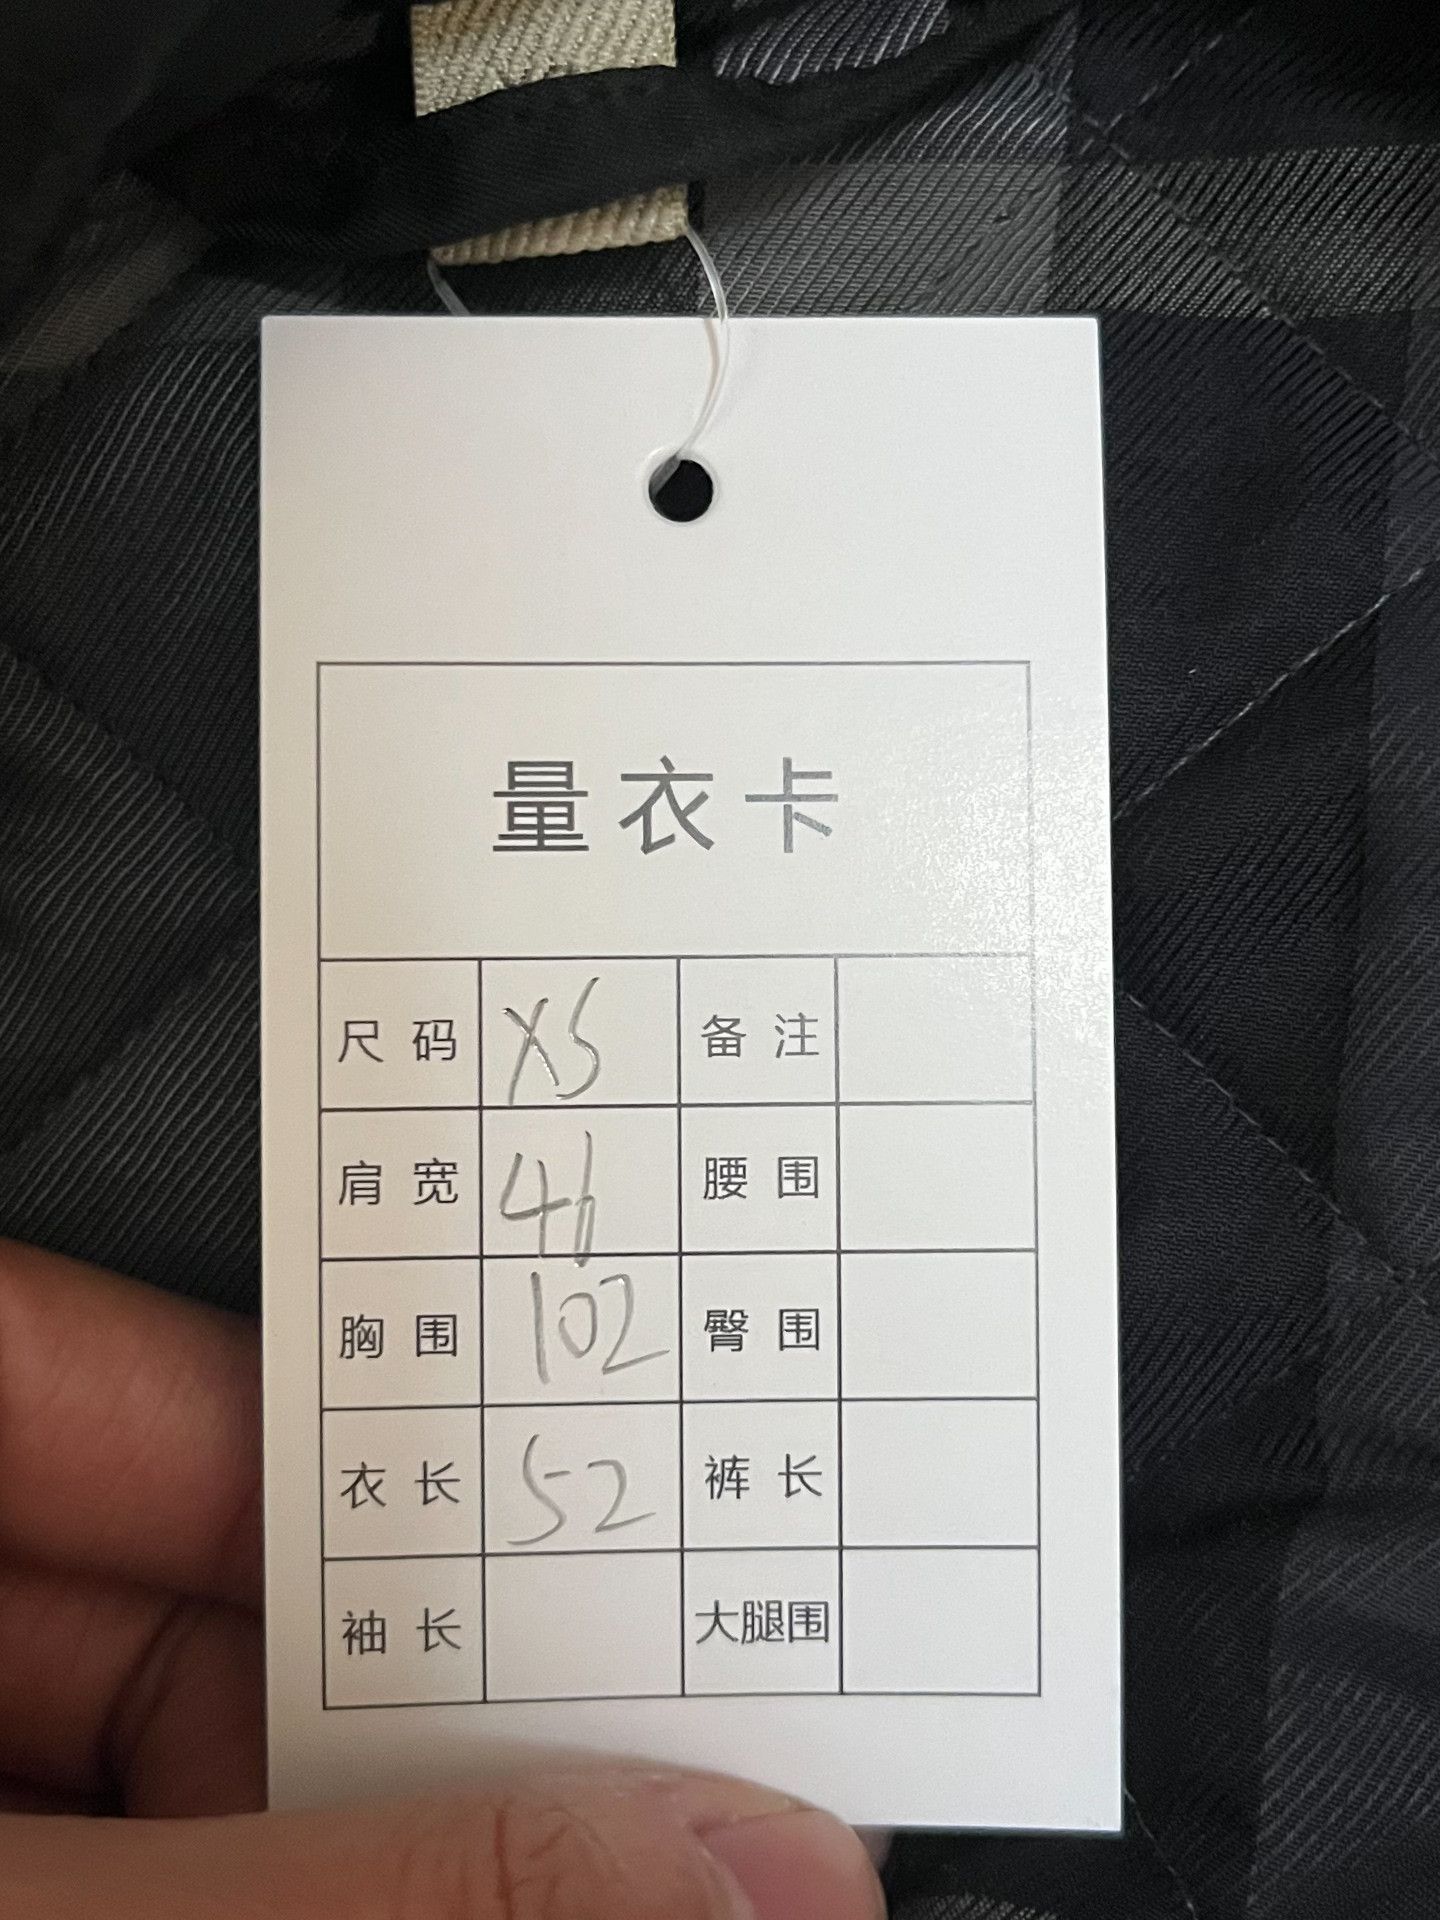 量衣卡
尺码 XS 备注
肩宽 46 腰围
胸围 102 臀围
衣长 52 裤长
袖长 大腿围